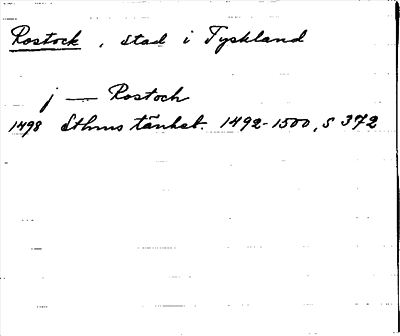 Rostock, stad i Tyskland
j — Rostoch
1498 Sthms tänkeb. 1492-1500, s 372